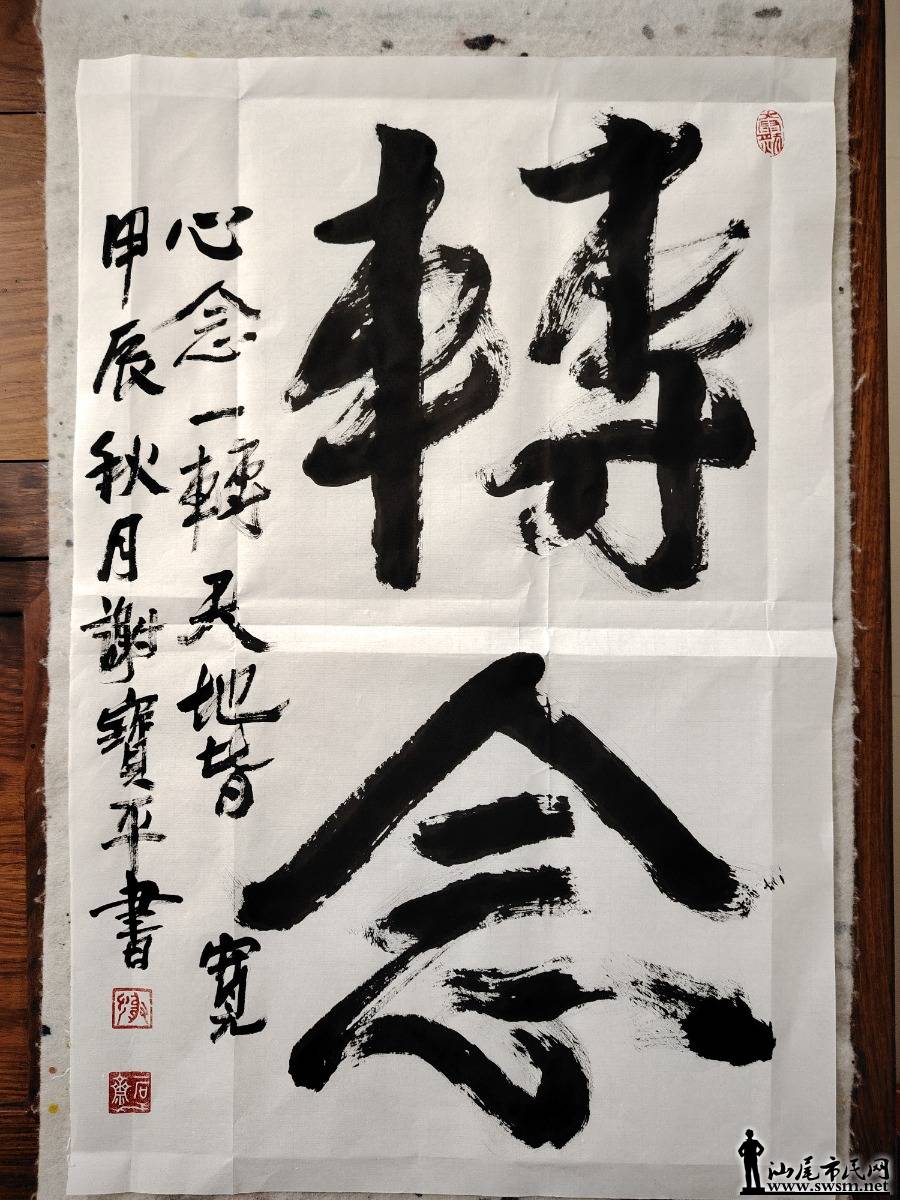 轉念
心念一轉天地皆寬
甲辰秋月謝寶平書
石齋
汕尾市民网
www.swsm.net